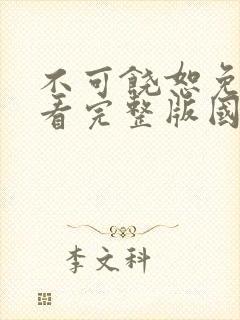 不可饶恕免
看完整版国
李文科